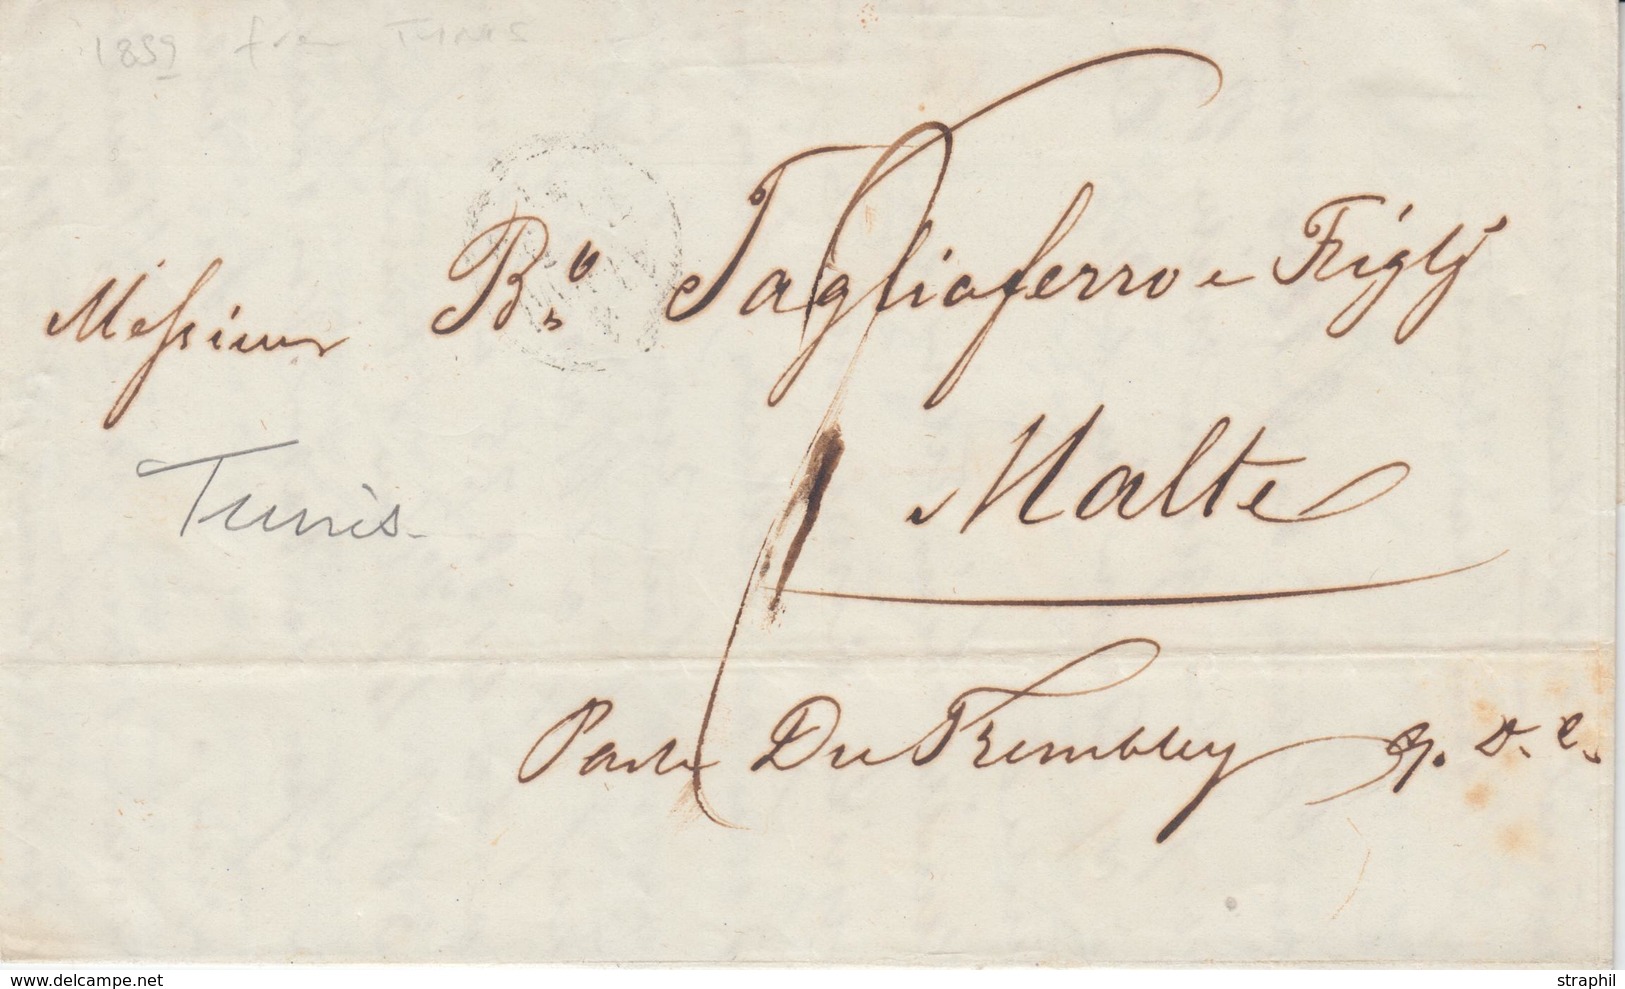 1859 from TUNIS
Messieurs B.o Tagliaferro e Figlj
Malte
Tunis
Par le Du Trembley
delcampe.net
straphil